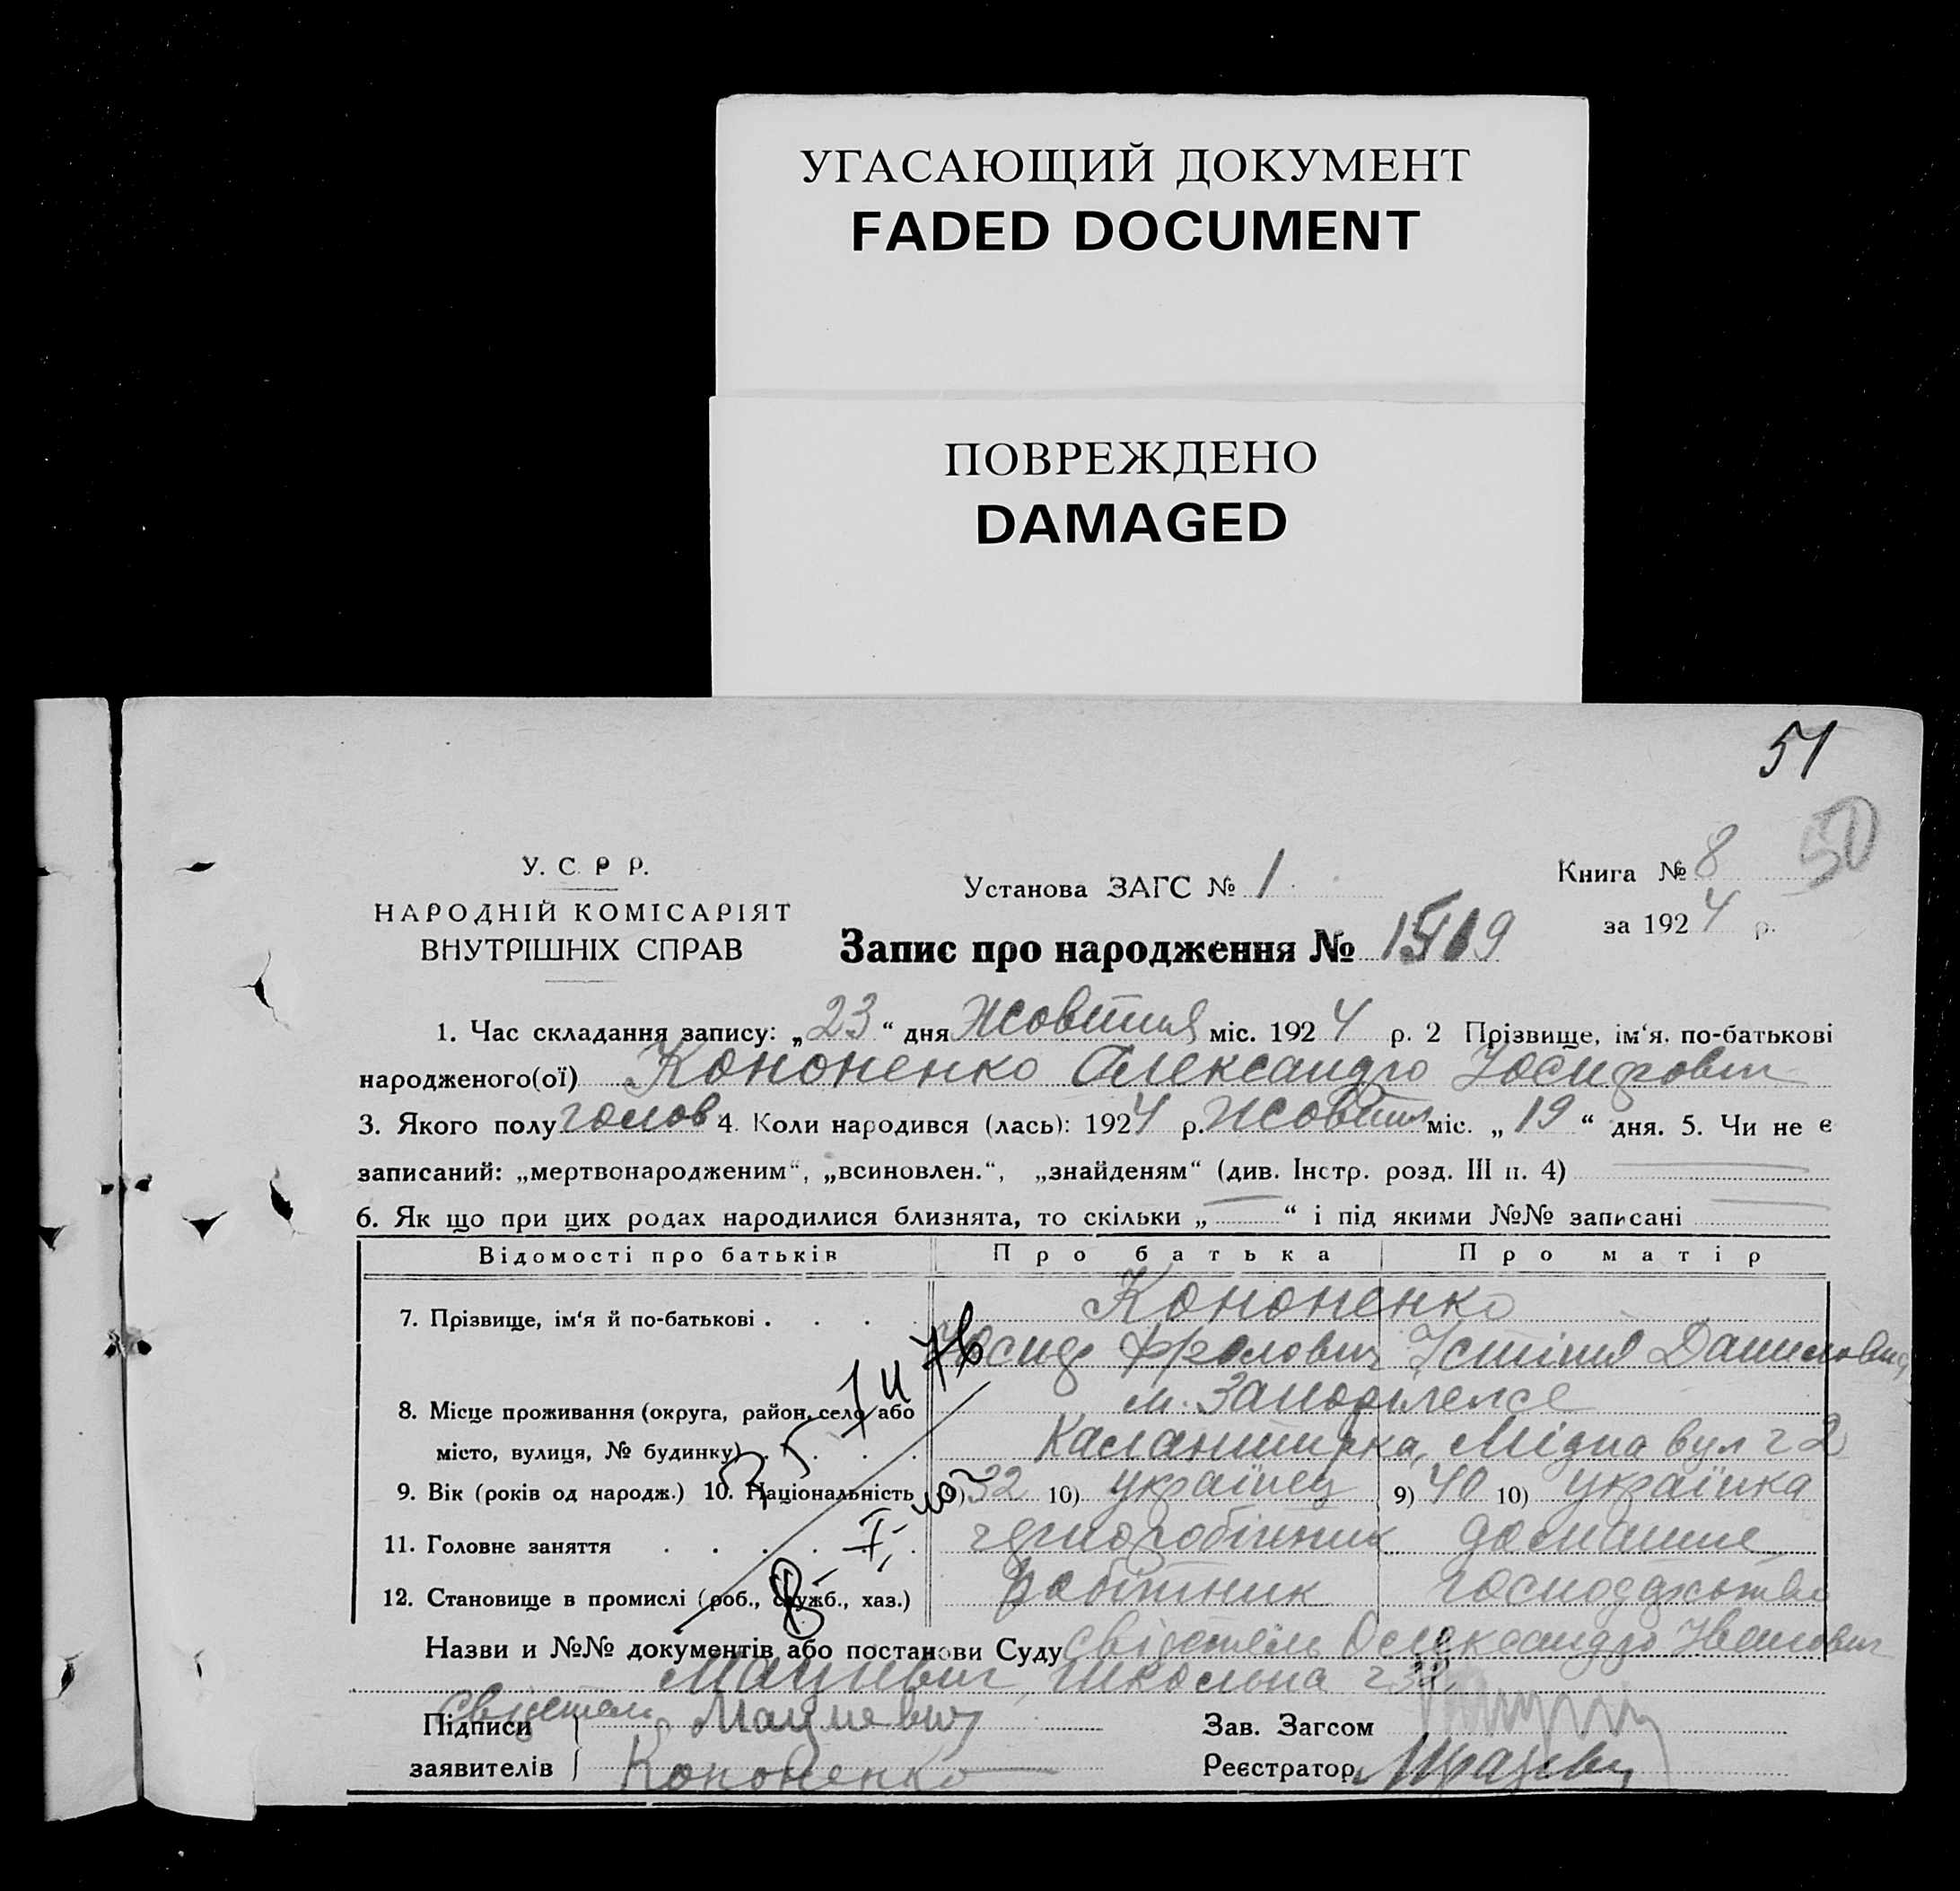 УГАСАЮЩИЙ ДОКУМЕНТ
FADED DOCUMENT
ПОВРЕЖДЕНО
DAMAGED
51
50
У. С. Р. Р.
НАРОДНІЙ КОМІСАРІЯТ
ВНУТРІШНІХ СПРАВ
Установа ЗАГС № 1
Книга № 8
за 1924 р.
Запис про народження №
1. Час складання запису: „23“ дня Жовтня міс. 1924 р. 2 Прізвище, ім‘я, по-батькові
народженого(ої) Кононенко Александро Йосипович
3. Якого полу чолов 4. Коли народився (лась): 1924 р. Жовтня міс. „19“ дня. 5. Чи не є
записаний: „мертвонародженим“, „всиновлен.“, „знайденям“ (див. Інстр. розд. III п. 4)
6. Як що при цих родах народилися близнята, то скільки „ “ і під якими №№ записані
Відомості про батьків Про батька Про матір
7. Прізвище, ім‘я й по-батькові . . . . Кононенко
Фролович Устінія Даниловна
8. Місце проживання (округа, район, село або м. Запоріжжє
місто, вулиця, № будинку) . . . . вул ч 2
9. Вік (років од народж.) 10. Національність 9) 32 10) українец 9) 40 10) українка
11. Головне заняття . . . . . . чорноробітник домашнє
12. Становище в промислі (роб., служб., хаз.) робітник господарство
Назви и №№ документів або постанови Суду Свідетель Олександро Іванович
Мацневич, школьна ч 32
Свідетель Мацневич
Підписи
заявителів Кононенко
Зав. Загсом
Реєстратор